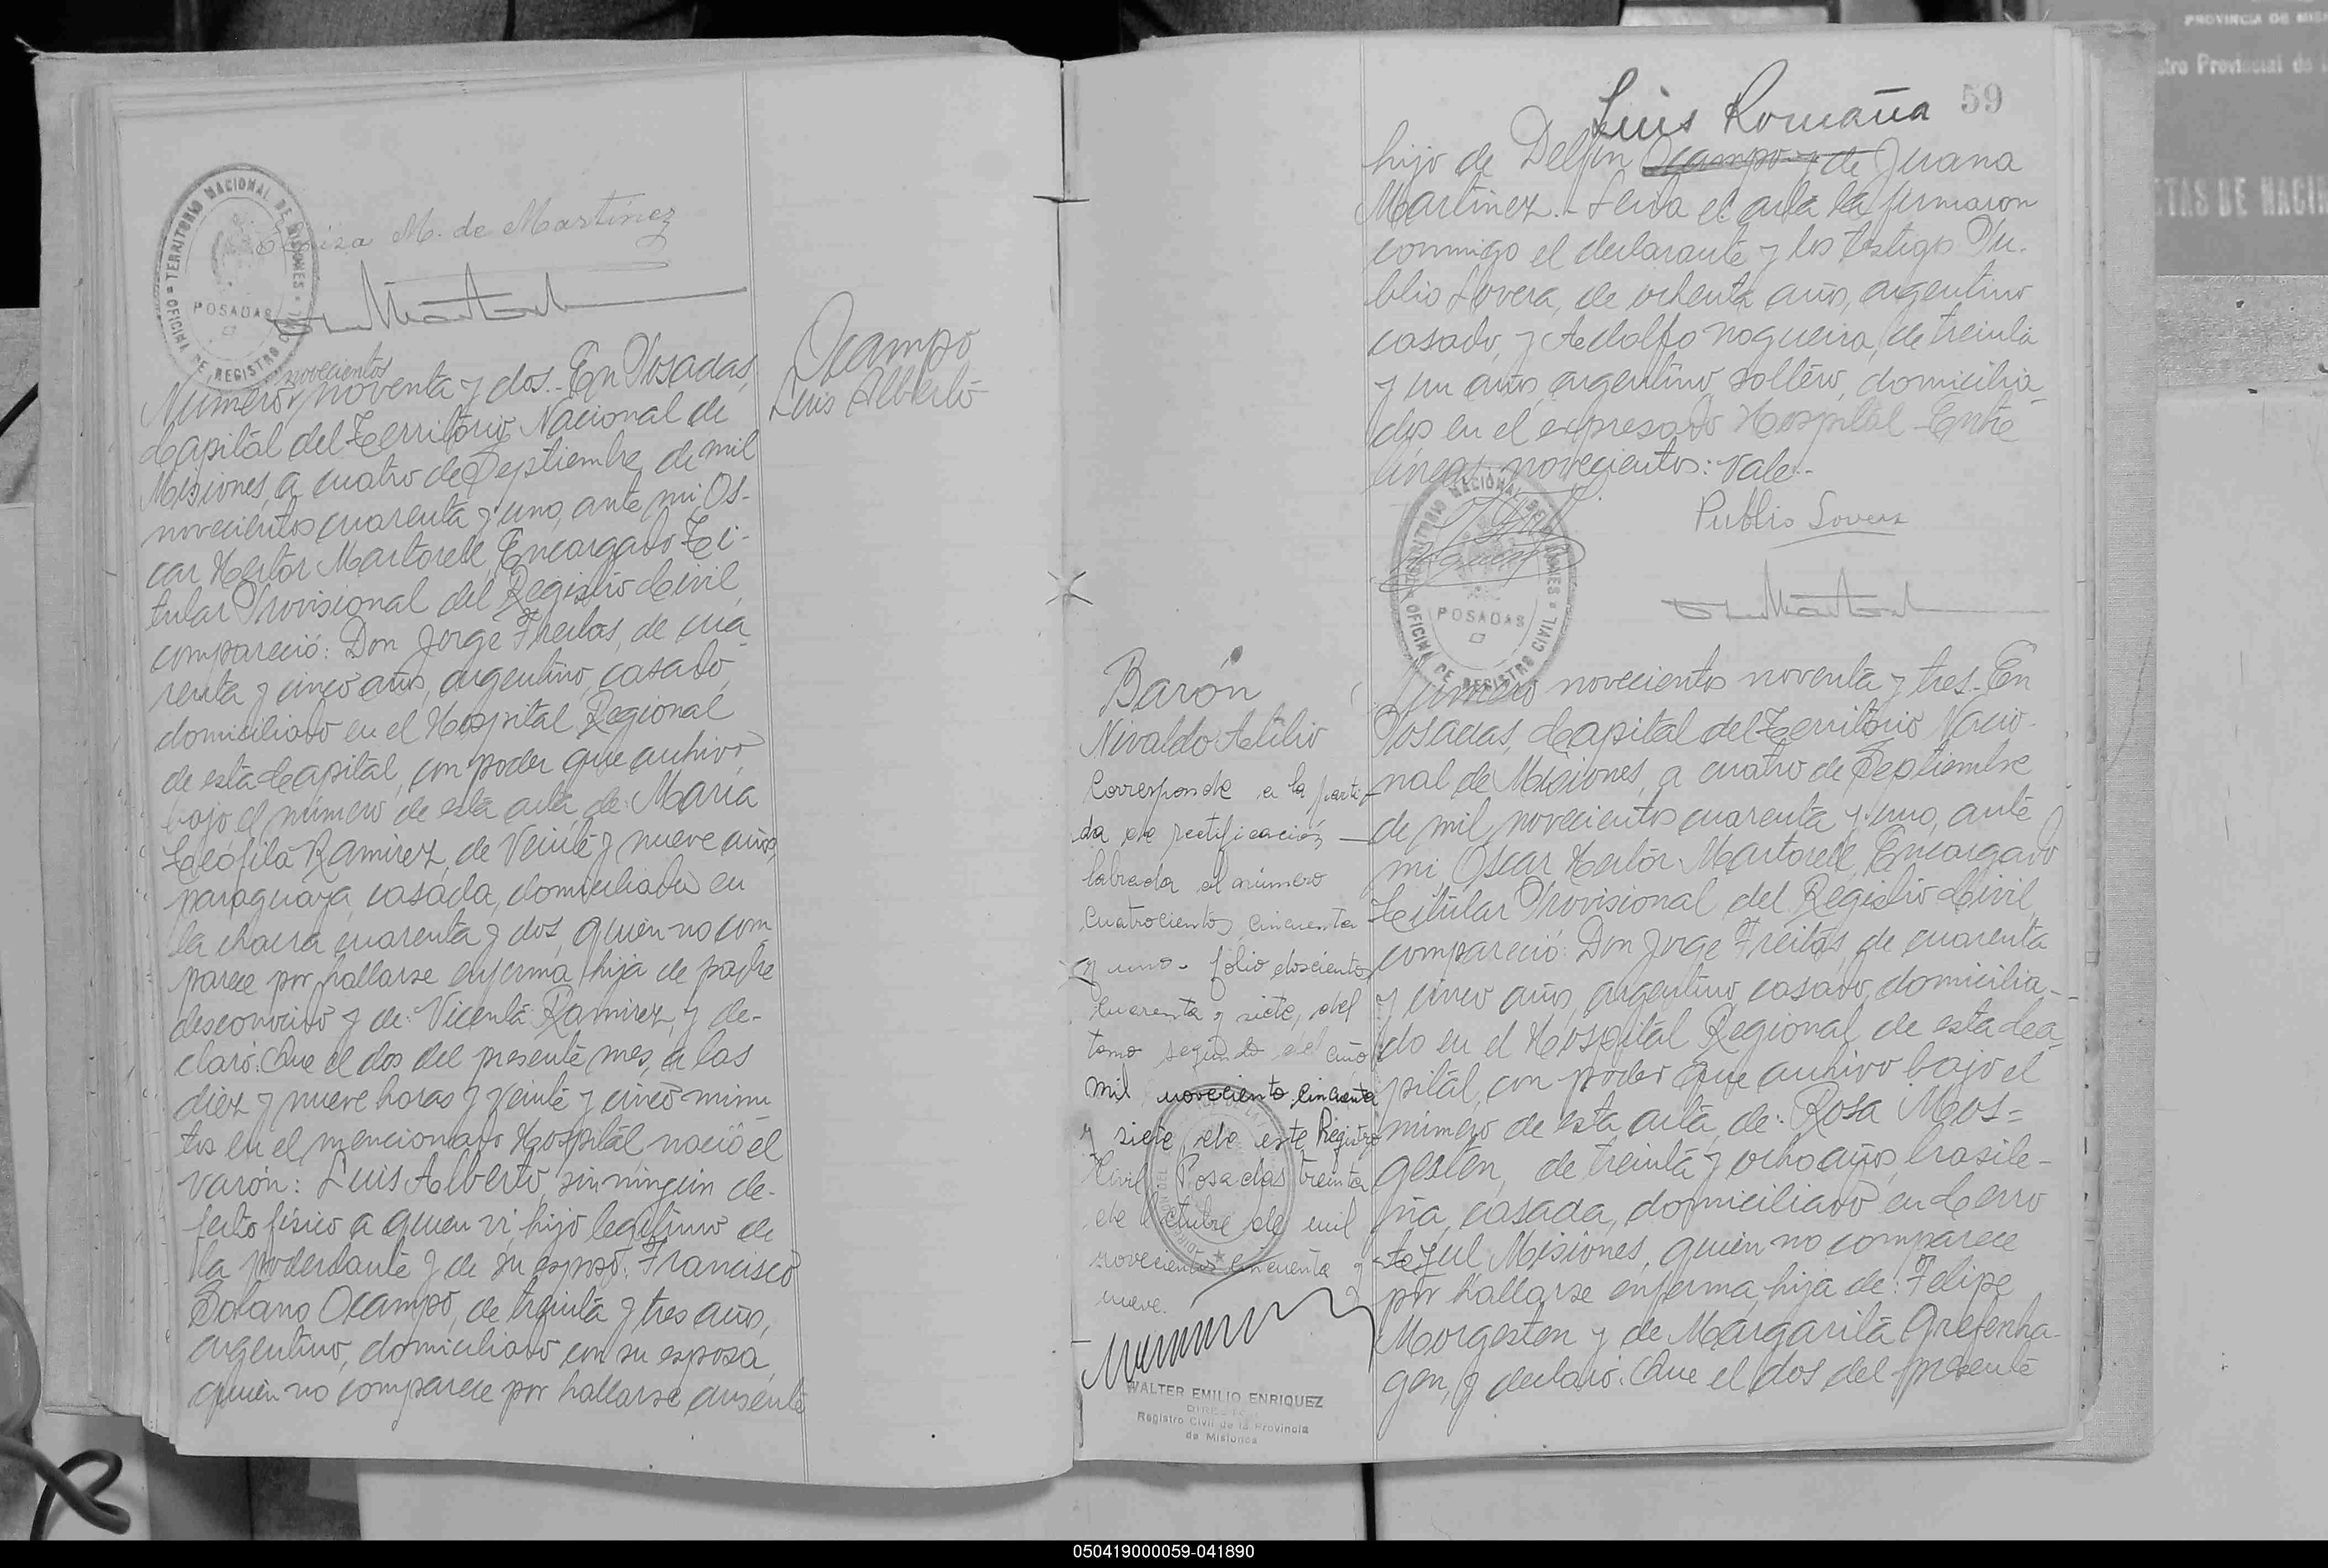 Eloiza M. de Martinez
TERRITORIO NACIONAL DE MISIONES
OFICINA DE REGISTRO CIVIL
POSADAS
novecientos
Número noventa y dos.- En Posadas,
Capital del Territorio Nacional de
Misiones, a cuatro de Septiembre de mil
novecientos cuarenta y uno, ante mi, Os-
car Hector Martorell, Encargado Ti-
tular Provisional del Registro Civil,
compareció: Don Jorge Freitas, de cua-
renta y cinco años, argentino, casado,
domiciliado en el Hospital Regional
de esta Capital, con poder que archivo
bajo el número de esta acta, de: María
Teófila Ramirez, de veinte y nueve años,
paraguaya, casada, domiciliada en
la chacra cuarenta y dos, quien no com
parece por hallarse enferma, hija de padre
desconocido y de: Vicenta Ramirez, y de-
claró: Que el dos del presente mes, a las
diez y nueve horas y veinte y cinco minu
tos en el mencionado Hospital, nació el
varón: Luis Alberto, sin ningún de-
fecto físico a quien vi, hijo legítimo de
la poderdante y de su esposo: Francisco
Solano Ocampo, de treinta y tres años,
argentino, domiciliado con su esposa,
quien no comparece por hallarse ausente
Ocampo
Luis Alberto
Luis Romaña
59
hijo de Delfin Ocampo y de Juana
Martinez.- Leida el acta la firmaron
conmigo el declarante y los testigos Pu-
blio Lovera, de ochenta años, argentino
casado, y Adolfo Nogueira, de treinta
y un años, argentino soltero, domicilia
dos en el expresado Hospital - Entre
líneas: novecientos: Vale.-
Publio Lovera
TERRITORIO NACIONAL DE MISIONES
OFICINA DE REGISTRO CIVIL
POSADAS
Barón
Nivaldo Atilio
Corresponde a la parti-
da de rectificación
labrada al número
cuatrocientos cincuenta
y uno - folio doscientos
cuarenta y siete, del
tomo segundo del año
mil noveciento cincuenta
y siete de este Registro
Civil Posadas treinta
de Octubre de mil
novecientos cincuenta y
nueve.
WALTER EMILIO ENRIQUEZ
DIRECTOR
Registro Civil de la Provincia
de Misiones
Número novecientos noventa y tres.- En
Posadas, Capital del Territorio Nacio-
nal de Misiones, a cuatro de Septiembre
de mil novecientos cuarenta y uno, ante
mi Oscar Hector Martorell, Encargado
Titular Provisional del Registro Civil,
compareció: Don Jorge Freitas, de cuarenta
y cinco años, argentino, casado, domicilia-
do en el Hospital Regional de esta Ca
pital, con poder que archivo bajo el
número de esta acta, de: Rosa Mos=
gesten, de treinta y ocho años, brasile-
ña, casada, domiciliado en Cerro
Azul Misiones, quien no comparece
por hallarse enferma, hija de: Felipe
Morgesten y de Margarita Grefenha-
gen, y declaró: Que el dos del presente
PROVINCIA DE MIS
stro Provincial de
CTAS DE NACIM
050419000059-041890